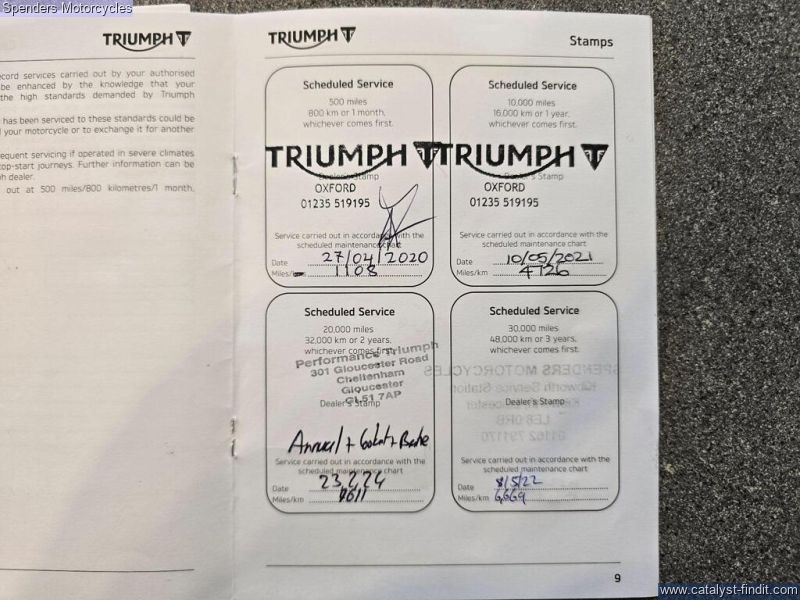 Spenders Motorcycles
TRIUMPH
ecord services carried out by your authorised
be enhanced by the knowledge that your
the high standards demanded by Triumph
has been serviced to these standards could be
l your motorcycle or to exchange it for another
equent servicing if operated in severe climates
top-start journeys. Further information can be
h dealer.
out at 500 miles/800 kilometres/1 month,
TRIUMPH
Stamps
Scheduled Service
500 miles
800 km or 1 month,
whichever comes first.
TRIUMPH
Dealer's Stamp
OXFORD
01235 519195
Service carried out in accordance with the
scheduled maintenance chart
Date 27/04/2020
Miles/km 1108
Scheduled Service
10,000 miles
16,000 km or 1 year,
whichever comes first.
TRIUMPH
Dealer's Stamp
OXFORD
01235 519195
Service carried out in accordance with the
scheduled maintenance chart
Date 10/05/2021
Miles/km 4726
Scheduled Service
20,000 miles
32,000 km or 2 years,
whichever comes first.
Performance Triumph
301 Gloucester Road
Cheltenham
Gloucester
GL51 7AP
Dealer's Stamp
Annual +
Service carried out in accordance with the
scheduled maintenance chart
Date 23.2.24
Miles/km
Scheduled Service
30,000 miles
48,000 km or 3 years,
whichever comes first.
SPENDERS MOTORCYCLES
Kibworth Service Station
Leicester
LE8 0RB
01162 791170
Dealer's Stamp
Service carried out in accordance with the
scheduled maintenance chart
Date 8/5/22
Miles/km 6,669
9
www.catalyst-findit.com